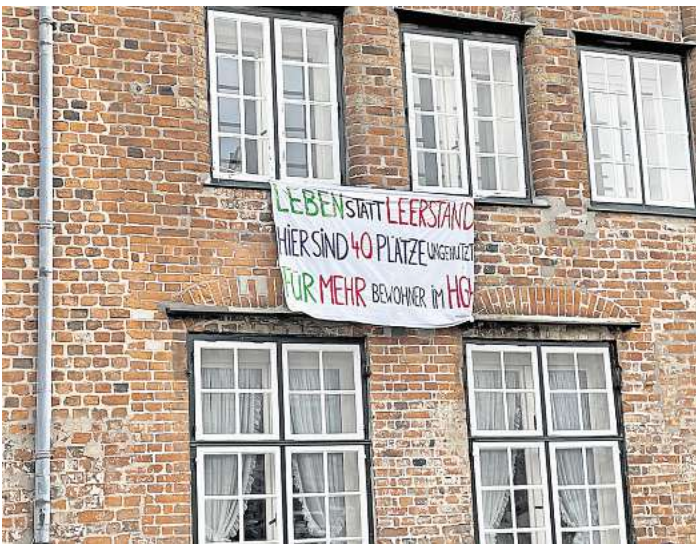 LEBEN STATT LEERSTAND
HIER SIND 40 PLÄTZE UNGENUTZT
FÜR MEHR BEWOHNER IM HGH